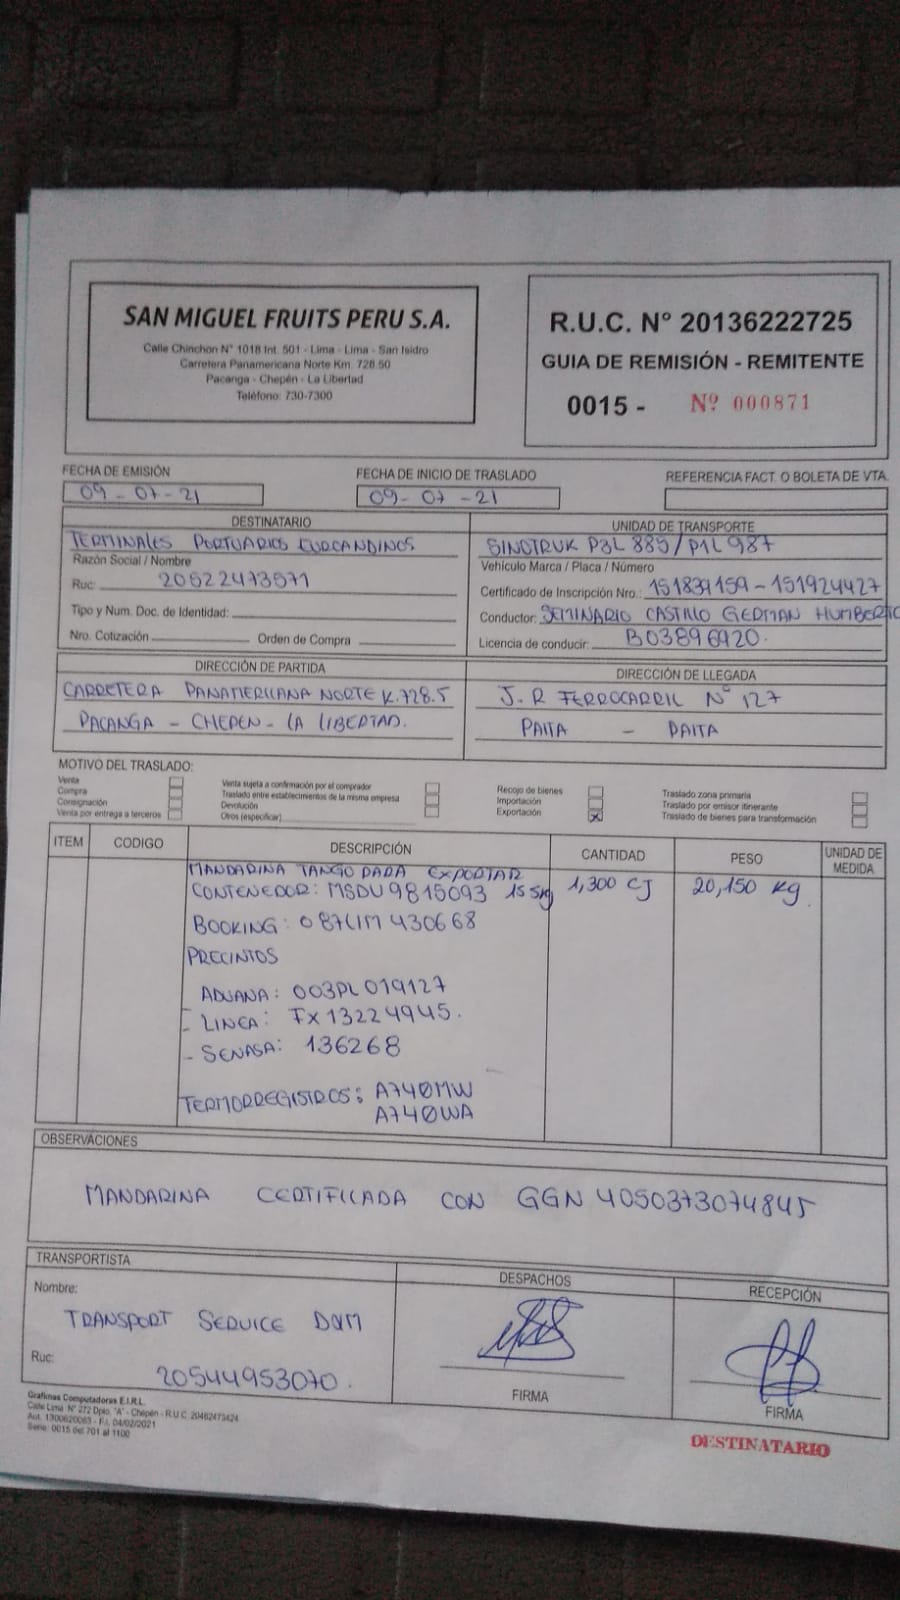 SAN MIGUEL FRUITS PERU S.A.
Calle Chinchon N° 1018 Int. 501 - Lima - Lima - San Isidro
Carretera Panamericana Norte Km. 728.50
Pacanga - Chepén - La Libertad
Teléfono: 730-7300
R.U.C. N° 20136222725
GUIA DE REMISIÓN - REMITENTE
0015 - Nº 000871
FECHA DE EMISIÓN
09-07-21
FECHA DE INICIO DE TRASLADO
09-07-21
REFERENCIA FACT. O BOLETA DE VTA.
DESTINATARIO
TERMINALES PORTUARIOS EUROANDINOS
Razón Social / Nombre
Ruc: 20522473571
Tipo y Num. Doc. de Identidad:
Nro. Cotización Orden de Compra
UNIDAD DE TRANSPORTE
SINOTRUK P3L 885/P1L 987
Vehículo Marca / Placa / Número
Certificado de Inscripción Nro.: 151839159-151924427
Conductor: SEMINARIO CASTILLO GERMAN HUMBERTO
Licencia de conducir: B03896920.
DIRECCIÓN DE PARTIDA
CARRETERA PANAMERICANA NORTE K.728.5
PACANGA - CHEPEN - LA LIBERTAD.
DIRECCIÓN DE LLEGADA
J.R FERROCARRIL N° 127
PAITA - PAITA
MOTIVO DEL TRASLADO:
Venta
Compra
Consignación
Venta por entrega a terceros
Venta sujeta a confirmación por el comprador
Traslado entre establecimientos de la misma empresa
Devolución
Otros (especificar)
Recojo de bienes
Importación
Exportación X
Traslado zona primaria
Traslado por emisor itinerante
Traslado de bienes para transformación
ITEM CODIGO DESCRIPCIÓN CANTIDAD PESO UNIDAD DE MEDIDA
MANDARINA TANGO PARA EXPORTAR
CONTENEDOR: MSDU9815093 15.5kg 1,300 CJ 20,150 Kg.
BOOKING: 087LIM430668
PRECINTOS
ADUANA: 003PL019127
- LINEA: FX13224945.
- SENASA: 136268
TERMORREGISTROS: A740MW
A740WA
OBSERVACIONES
MANDARINA CERTIFICADA CON GGN 4050373074845
TRANSPORTISTA
Nombre:
TRANSPORT SERVICE DQM
Ruc:
20544953070.
DESPACHOS
FIRMA
RECEPCIÓN
FIRMA
Graficnas Computadoras E.I.R.L.
Calle Lima N° 272 Dpto. "A" - Chepén - R.U.C. 20482473424
Aut. 1300620083 - F.I. 04/02/2021
Serie: 0015 del 701 al 1100
DESTINATARIO